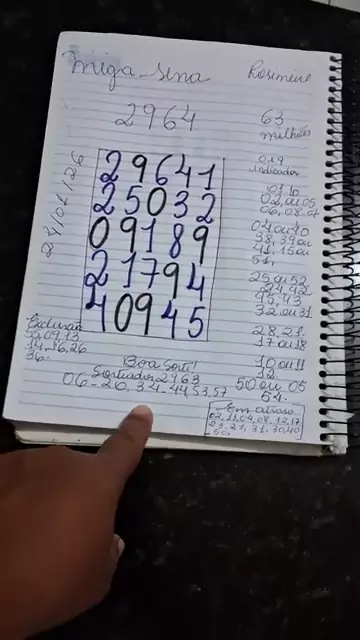 miga-sena Rosimeire
2964
63
milhões
24/01/26
29641
25032
09189
21794
40945
019
Indicador
01.10
02, ou 05
06, 08.07
04 ou 40
38, 39 ou
41. 15 ou
51,
25 ou 52
24, 42
45, 43
32 ou 31
28, 21.
17 ou 18
10 ou 11
12
50 ou 05
54.
Exclusão
14, 16, 26
36.
Boa Sorte!
Sorteados 2963
06-20, 34-44, 53, 57
Em atraso
02, 11, 04, 08, 12, 17
23, 27, 31, 30, 40
50.